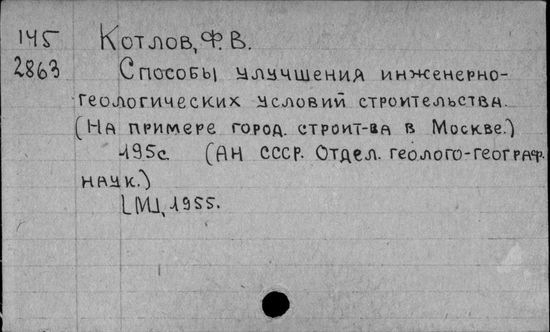 145 Котлов, Ф. В.
2863 Способы улучшения инженерно-
геологических условий строительства.
(На примере город. строит-ва в Москве.)
195с. (АН СССР. Отдел. геолого-географ.
наук.)
[М], 1955.